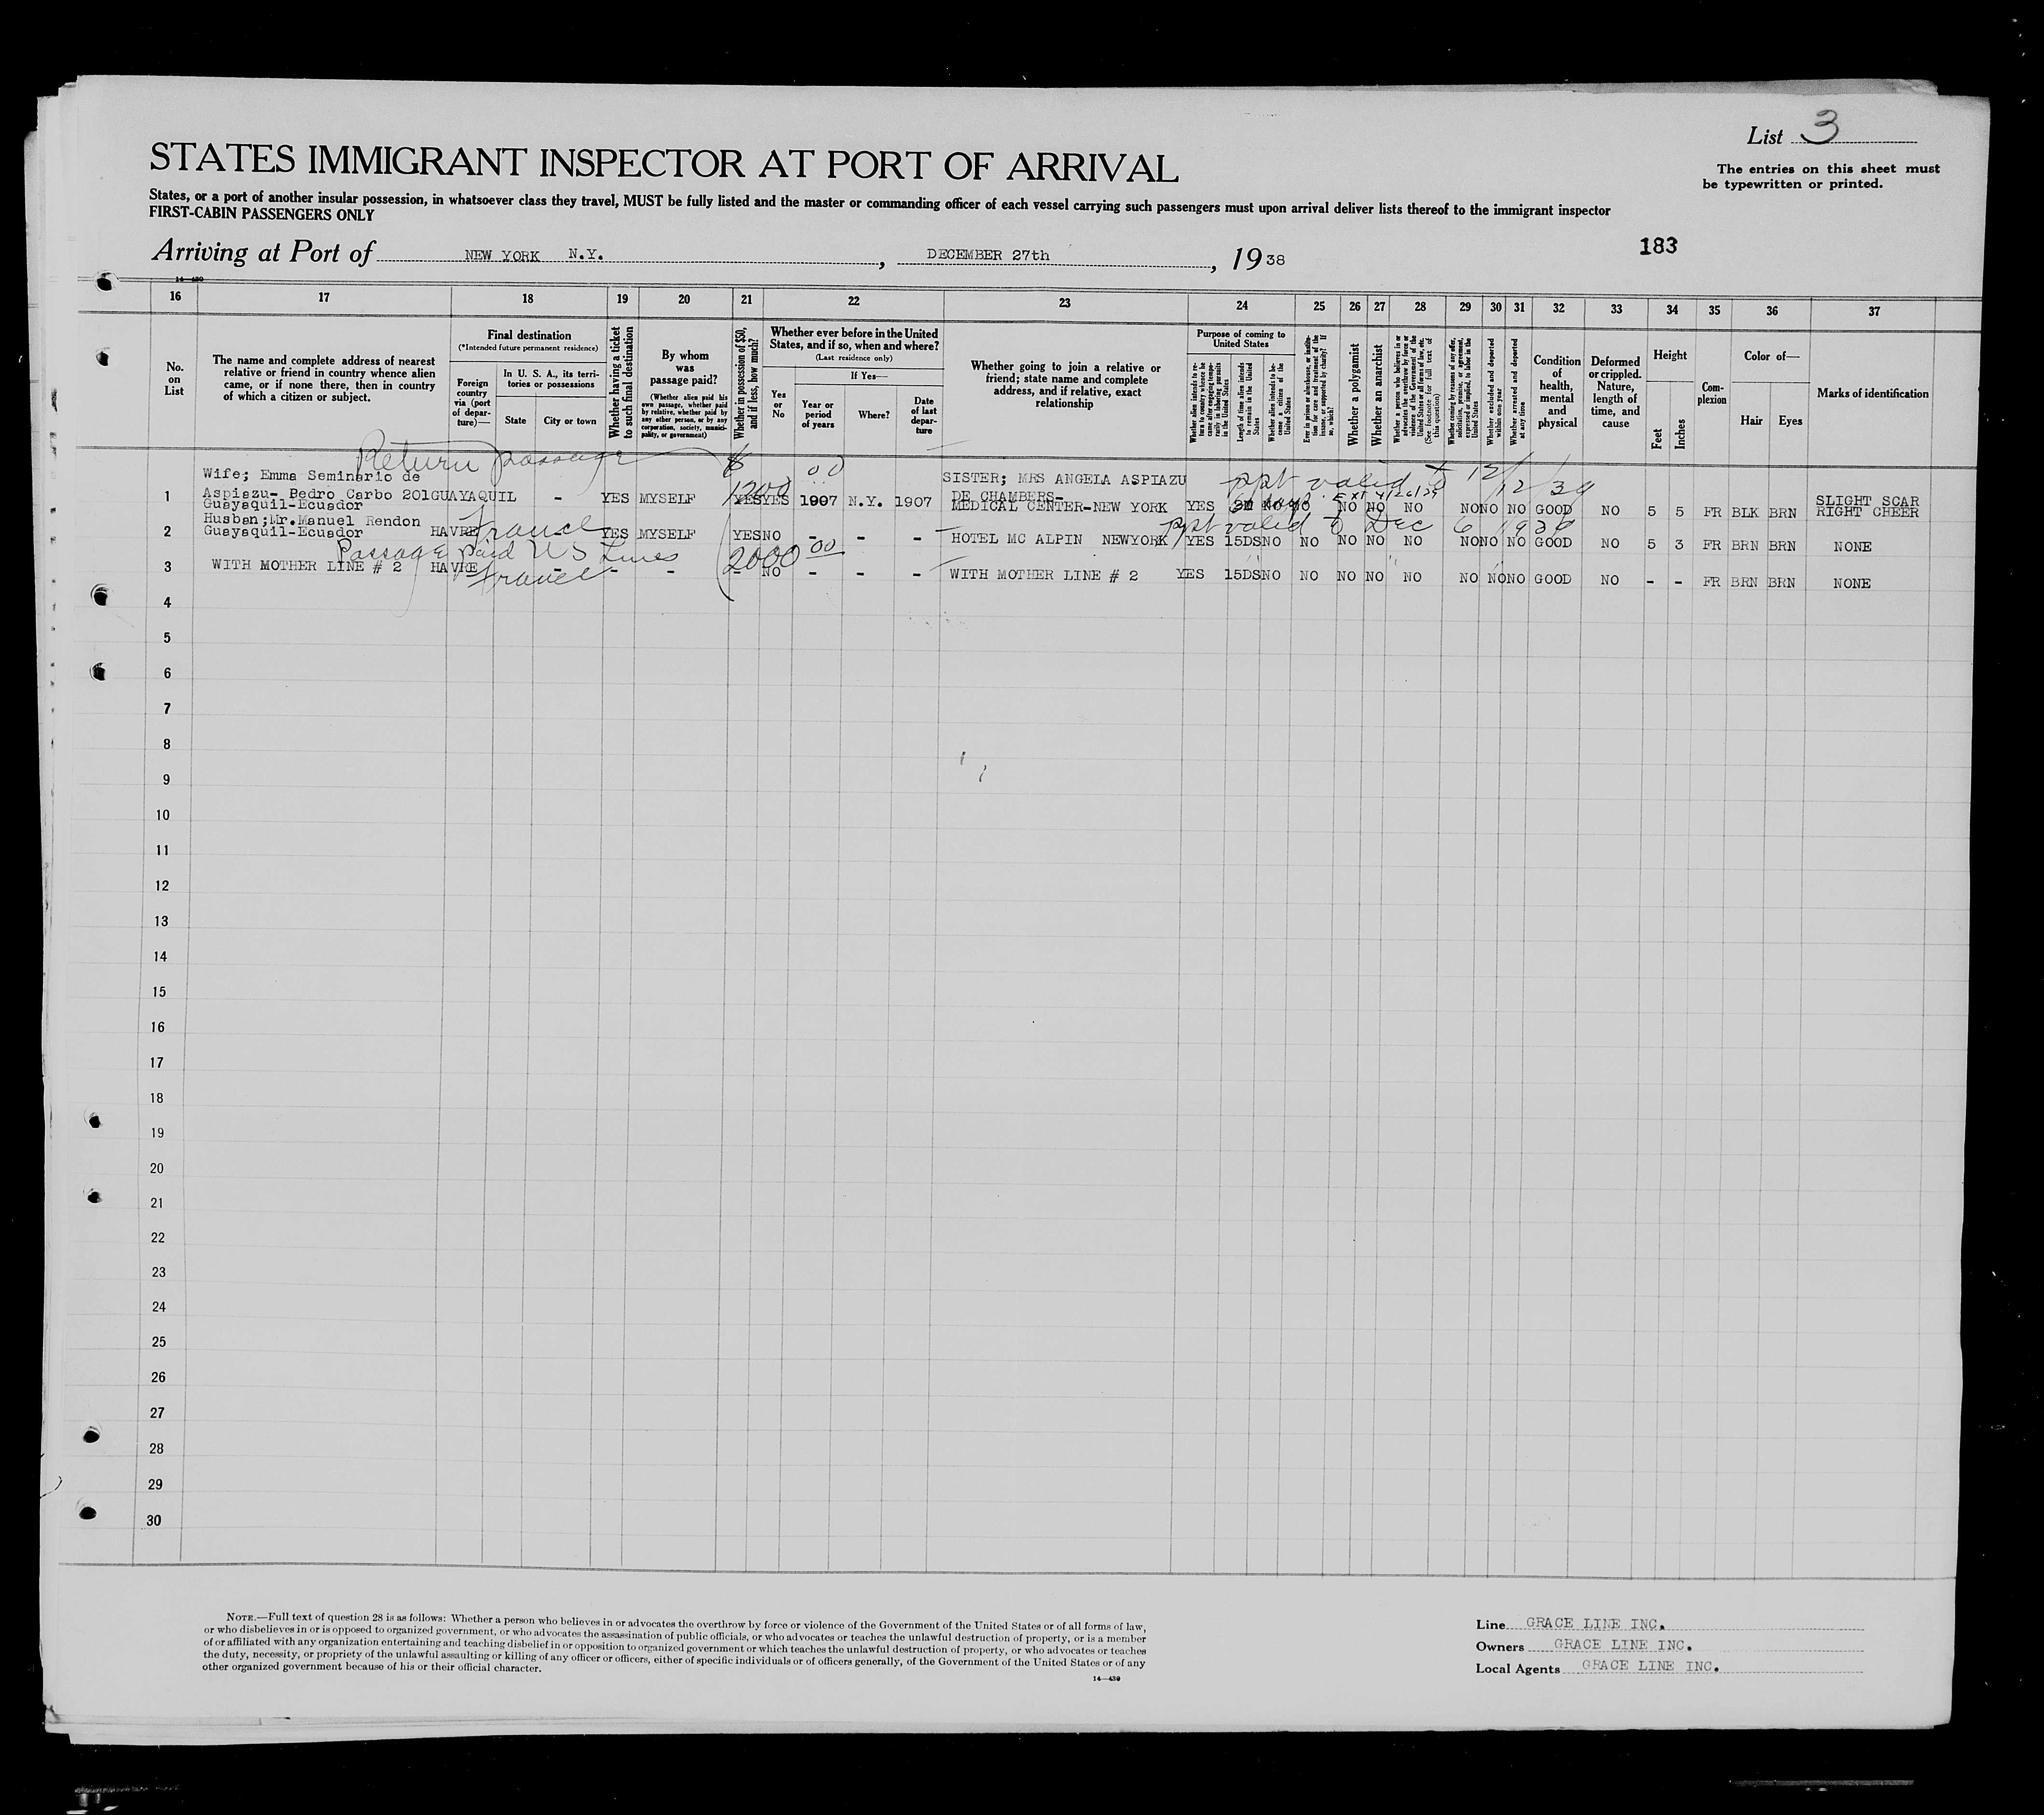 List 3
The entries on this sheet must
be typewritten or printed.
STATES IMMIGRANT INSPECTOR AT PORT OF ARRIVAL
States, or a port of another insular possession, in whatsoever class they travel, MUST be fully listed and the master or commanding officer of each vessel carrying such passengers must upon arrival deliver lists thereof to the immigrant inspector
FIRST-CABIN PASSENGERS ONLY
183
Arriving at Port of NEW YORK N.Y. , DECEMBER 27th , 1938
14-430
16 17 18 19 20 21 22 23 24 25 26 27 28 29 30 31 32 33 34 35 36 37
No.
on
List
The name and complete address of nearest
relative or friend in country whence alien
came, or if none there, then in country
of which a citizen or subject.
Final destination
(*Intended future permanent residence)
Foreign
country
via (port
of depar-
ture)—
In U. S. A., its terri-
tories or possessions
State City or town
Whether having a ticket
to such final destination
By whom
was
passage paid?
(Whether alien paid his
own passage, whether paid
by relative, whether paid by
any other person, or by any
corporation, society, munici-
pality, or government)
Whether in possession of $50,
and if less, how much?
Whether ever before in the United
States, and if so, when and where?
(Last residence only)
Yes
or
No
If Yes—
Year or
period
of years
Where?
Date
of last
depar-
ture
Whether going to join a relative or
friend; state name and complete
address, and if relative, exact
relationship
Purpose of coming to
United States
Whether alien intends to re-
turn to country whence he
came after engaging tempo-
rarily in laboring pursuits
in the United States
Length of time alien intends
to remain in the United
States
Whether alien intends to be-
come a citizen of the
United States
Ever in prison or almshouse, or institu-
tion for care and treatment of the
insane, or supported by charity? If
so, which?
Whether a polygamist
Whether an anarchist
Whether a person who believes in or
advocates the overthrow by force or
violence of the Government of the
United States or all forms of law, etc.
(See footnote for full text of
this question)
Whether coming by reasons of any offer,
solicitation, promise, or agreement,
expressed or implied, to labor in the
United States
Whether excluded and deported
within one year
Whether arrested and deported
at any time
Condition
of
health,
mental
and
physical
Deformed
or crippled.
Nature,
length of
time, and
cause
Height
Feet Inches
Com-
plexion
Color of—
Hair Eyes
Marks of identification
Return passage $ 1200 00
ppt valid to 12/12/39
Ext 4/26/39
Wife; Emma Seminario de SISTER; MRS ANGELA ASPIAZU
1 Aspiazu- Pedro Carbo 201 GUAYAQUIL - YES MYSELF YES YES 1907 N.Y. 1907 DE CHAMBERS- SLIGHT SCAR
Guayaquil-Ecuador MEDICAL CENTER-NEW YORK YES NO NO NO NO NO NO NO NO GOOD NO 5 5 FR BLK BRN RIGHT CHEER
Husban;Mr.Manuel Rendon
France ppt valid to Dec 6 1939
2 Guayaquil-Ecuador HAVRE - YES MYSELF YES NO - - - HOTEL MC ALPIN NEWYORK YES 15DS NO NO NO NO NO NO NO NO GOOD NO 5 3 FR BRN BRN NONE
Passage paid U S Lines 2000 00
3 WITH MOTHER LINE # 2 HAVRE - - - - - NO - - - WITH MOTHER LINE # 2 YES 15DS NO NO NO NO NO NO NO NO GOOD NO - - FR BRN BRN NONE
France
4
5
6
7
8
9
10
11
12
13
14
15
16
17
18
19
20
21
22
23
24
25
26
27
28
29
30
NOTE.—Full text of question 28 is as follows: Whether a person who believes in or advocates the overthrow by force or violence of the Government of the United States or of all forms of law,
or who disbelieves in or is opposed to organized government, or who advocates the assassination of public officials, or who advocates or teaches the unlawful destruction of property, or is a member
of or affiliated with any organization entertaining and teaching disbelief in or opposition to organized government or which teaches the unlawful destruction of property, or who advocates or teaches
the duty, necessity, or propriety of the unlawful assaulting or killing of any officer or officers, either of specific individuals or of officers generally, of the Government of the United States or of any
other organized government because of his or their official character.
14—430
Line GRACE LINE INC.
Owners GRACE LINE INC.
Local Agents GRACE LINE INC.